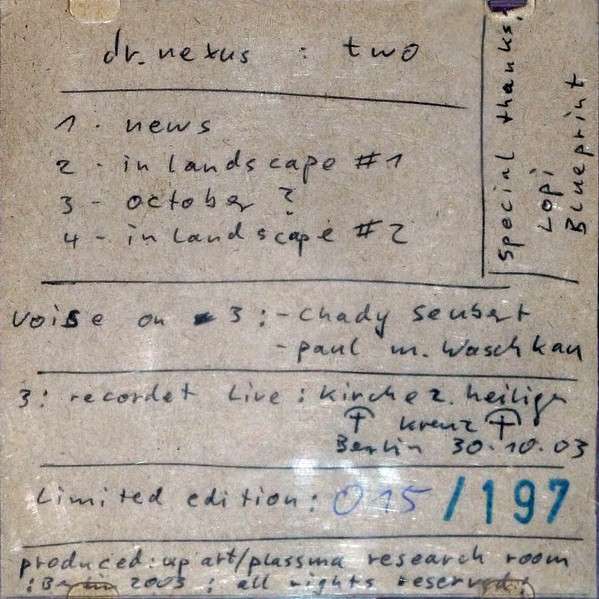 dr. nexus : two
1 - news
2 - in landscape #1
3 - october ?
4 - in landscape #2
special thanks:
Lopi
Blueprint
voise on 3 : - Chady Seubert
- paul m. waschkau
3: recordet live : Kirche z. heiligen
kreuz
Berlin 30.10.03
Limited edition: 015 / 197
produced: up art/plassma research room
: Berlin 2003 : all rights reserved :